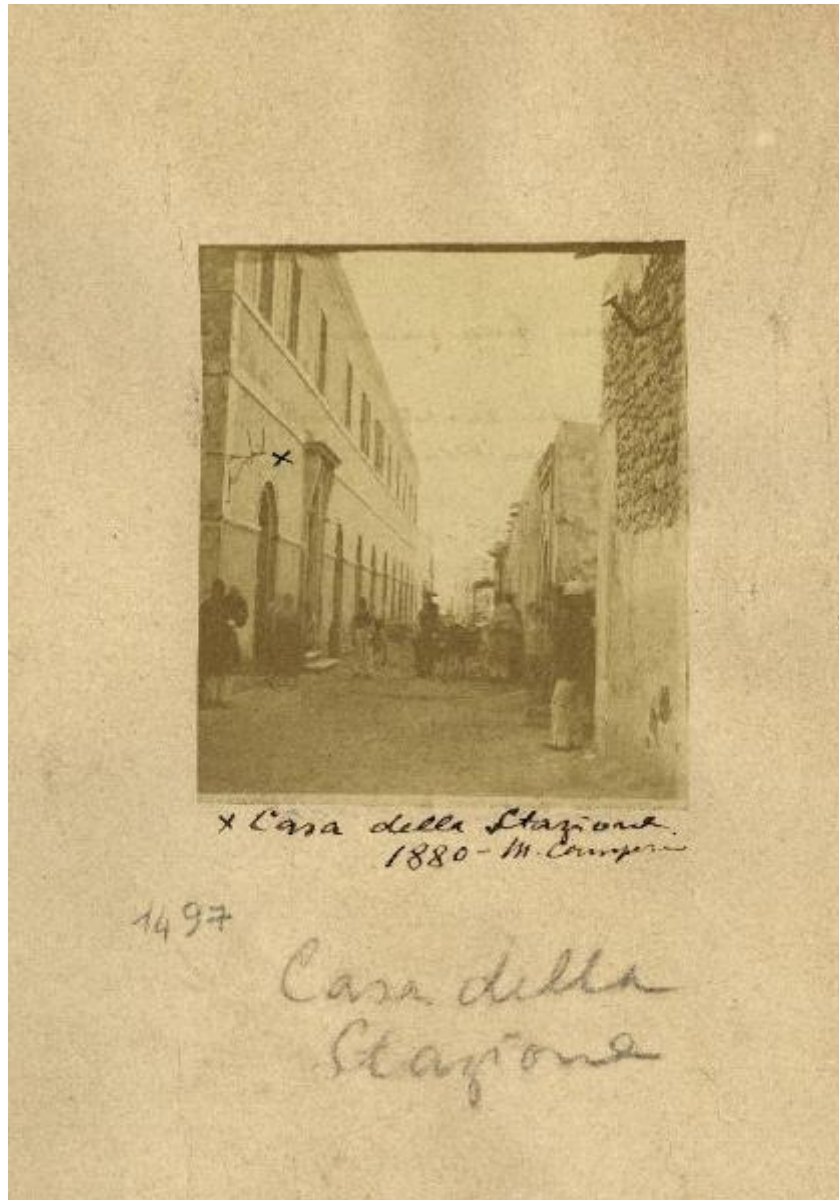 x Casa della Stazione.
1880 - M. Camperio
1497
Casa della
Stazione